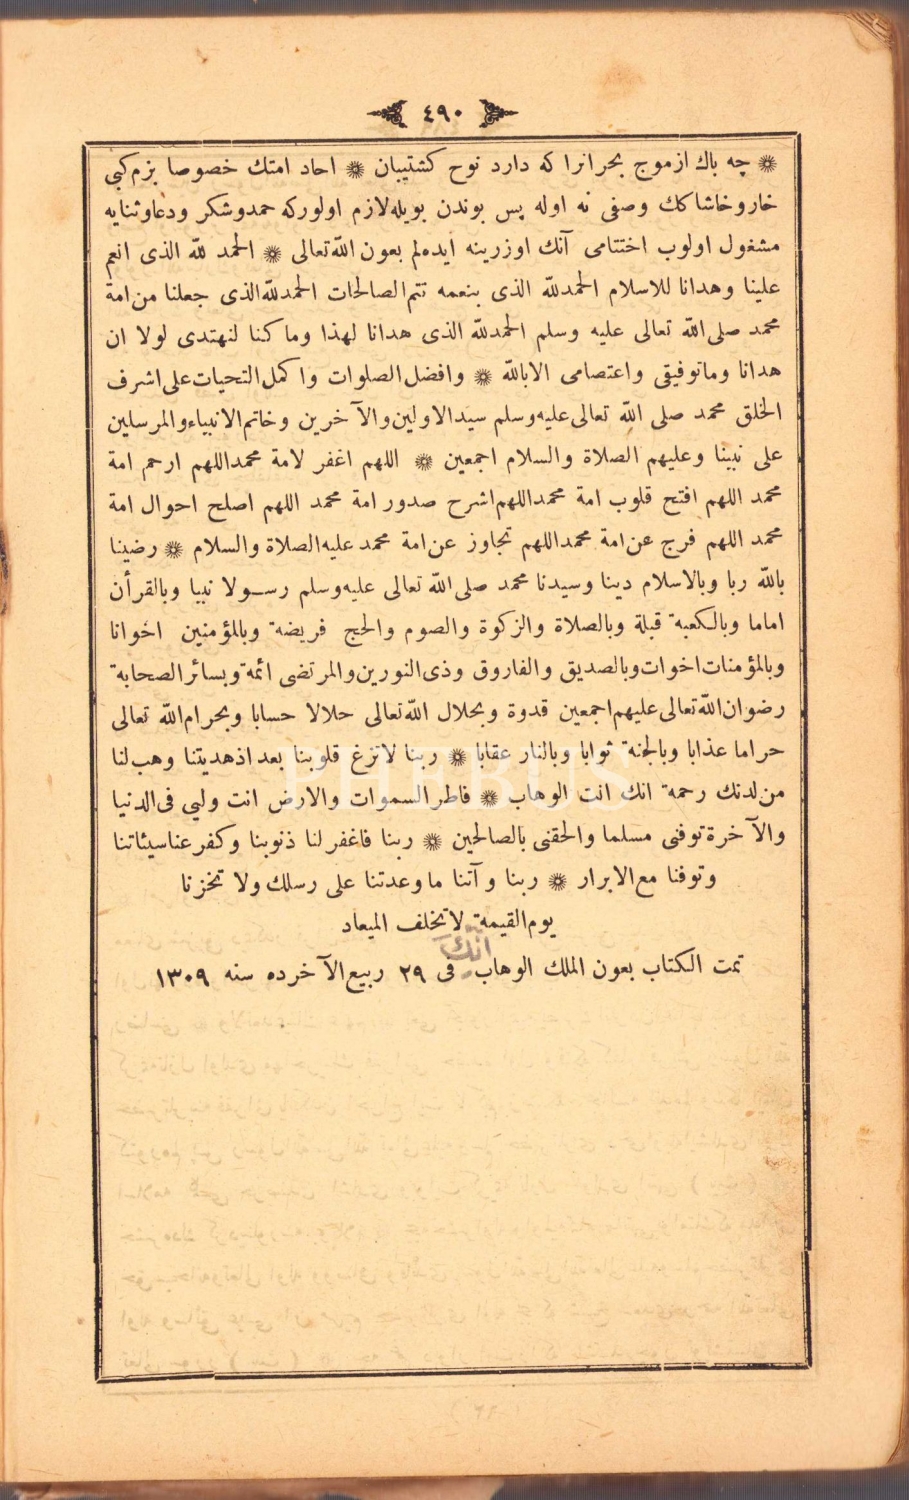 ٤٩٠
❋ چه باك ازموج بحر انرا كه دارد نوح كشتيبان ❋ احاد امتك خصوصا بزم كبى
خار وخاشاكك وصفى نه اوله پس بوندن بويله لازم اولوركه حمد وشكر ودعا وثنايه
مشغول اولوب اختتامى آنك اوزرينه ايده لم بعون الله تعالى ❋ الحمد لله الذى انعم
علينا وهدانا للاسلام الحمدلله الذى بنعمه تتم الصالحات الحمدلله الذى جعلنا من امة
محمد صلى الله تعالى عليه وسلم الحمدلله الذى هدانا لهذا وما كنا لنهتدى لولا ان
هدانا وماتوفيقى واعتصامى الابالله ❋ وافضل الصلوات واكمل التحيات على اشرف
الخلق محمد صلى الله تعالى عليه وسلم سيد الاولين والآخرين وخاتم الانبياء والمرسلين
على نبينا وعليهم الصلاة والسلام اجمعين ❋ اللهم اغفر لامة محمد اللهم ارحم امة
محمد اللهم افتح قلوب امة محمد اللهم اشرح صدور امة محمد اللهم اصلح احوال امة
محمد اللهم فرج عن امة محمد اللهم تجاوز عن امة محمد عليه الصلاة والسلام ❋ رضينا
بالله ربا وبالاسلام دينا وسيدنا محمد صلى الله تعالى عليه وسلم رسولا نبيا وبالقرأن
اماما وبالكعبة قبلة وبالصلاة والزكوة والصوم والحج فريضة وبالمؤمنين اخوانا
وبالمؤمنات اخوات وبالصديق والفاروق وذى النورين والمرتضى ائمة وبسائر الصحابة
رضوان الله تعالى عليهم اجمعين قدوة وبحلال الله تعالى حلالا حسابا وبحرام الله تعالى
حراما عذابا وبالجنة ثوابا وبالنار عقابا ❋ ربنا لاتزغ قلوبنا بعد اذ هديتنا وهب لنا
من لدنك رحمة انك انت الوهاب ❋ فاطر السموات والارض انت وليي فى الدنيا
والآخرة توفنى مسلما والحقنى بالصالحين ❋ ربنا فاغفر لنا ذنوبنا وكفر عنا سيئاتنا
وتوفنا مع الابرار ❋ ربنا وآتنا ماوعدتنا على رسلك ولا تخزنا
يوم القيمة لاتخلف الميعاد
انّك
تمت الكتاب بعون الملك الوهاب فى ٢٩ ربيع الآخرده سنه ١٣٠٩
PHEBUS